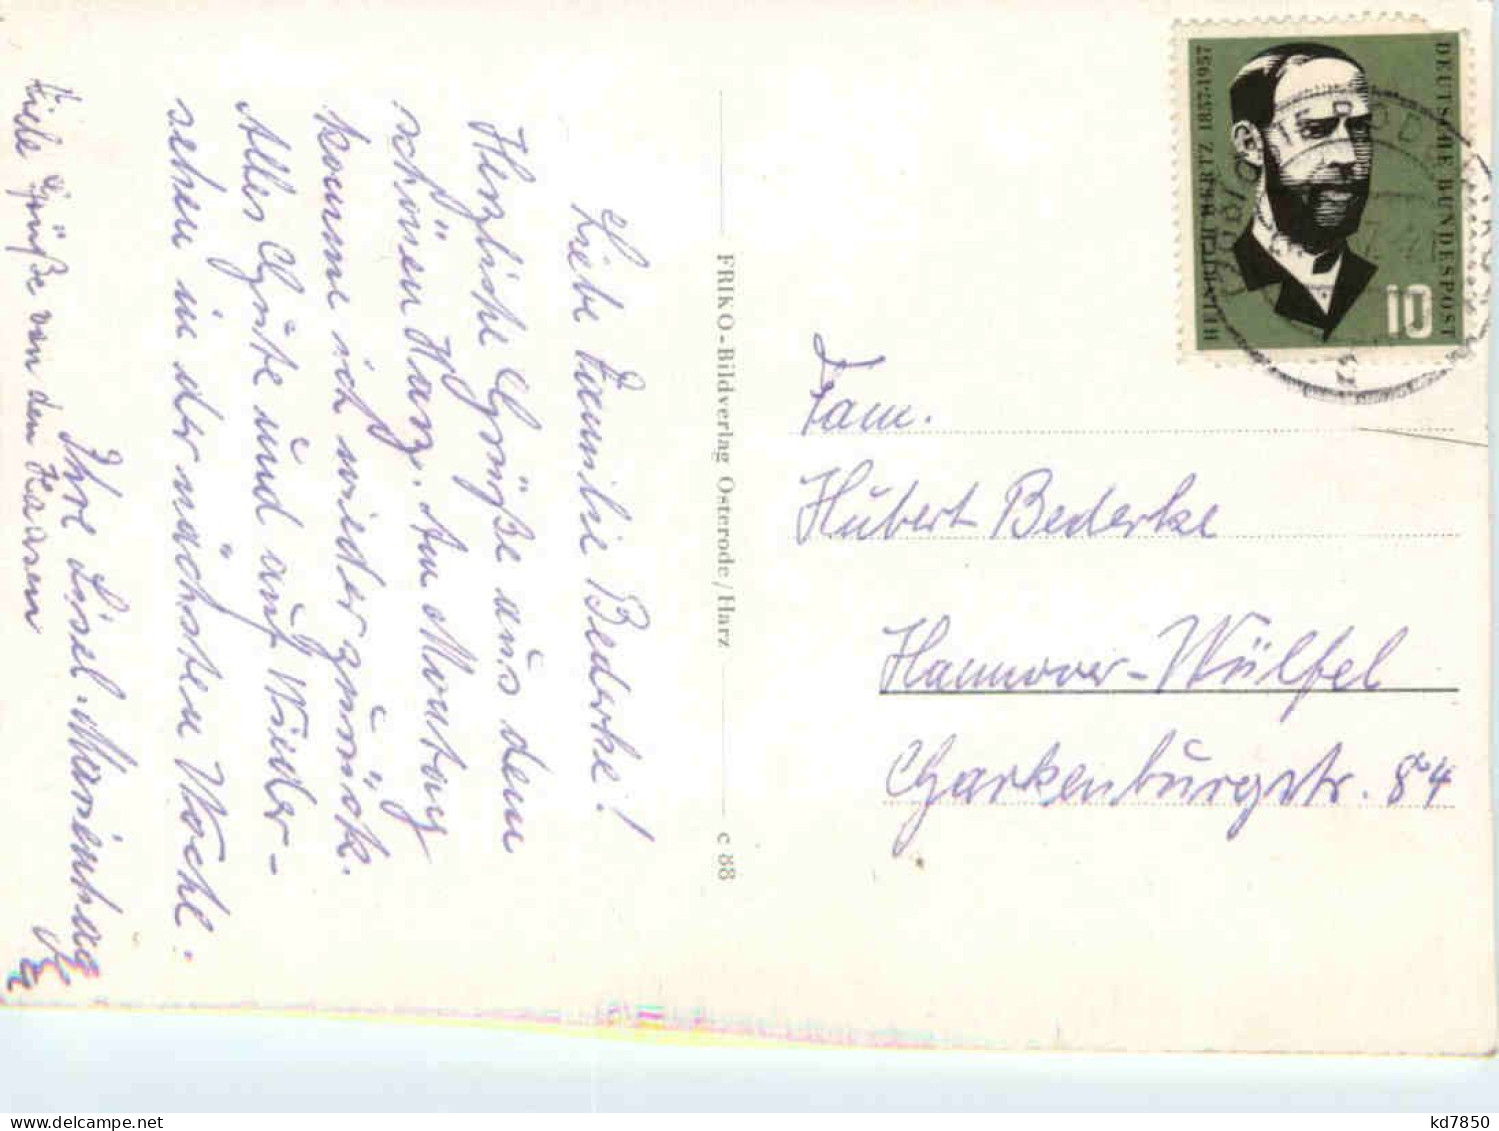 Liebe Familie Bederke!
Herzliche Grüße aus dem
schönen Harz. Am Montag
komme ich wieder zurück.
Alles Gute und auf Wieder-
sehen in der nächsten Woche.
Ihre Lisel
Liebe Grüße von den
FRIKO-Bildverlag Osterode/Harz
c 88
DEUTSCHE BUNDESPOST
HEINRICH HERTZ 1857·1957
10
Fam.
Hubert Bederke
Hannover-Wülfel
Garkenburgstr. 84
delcampe.net
kd7850